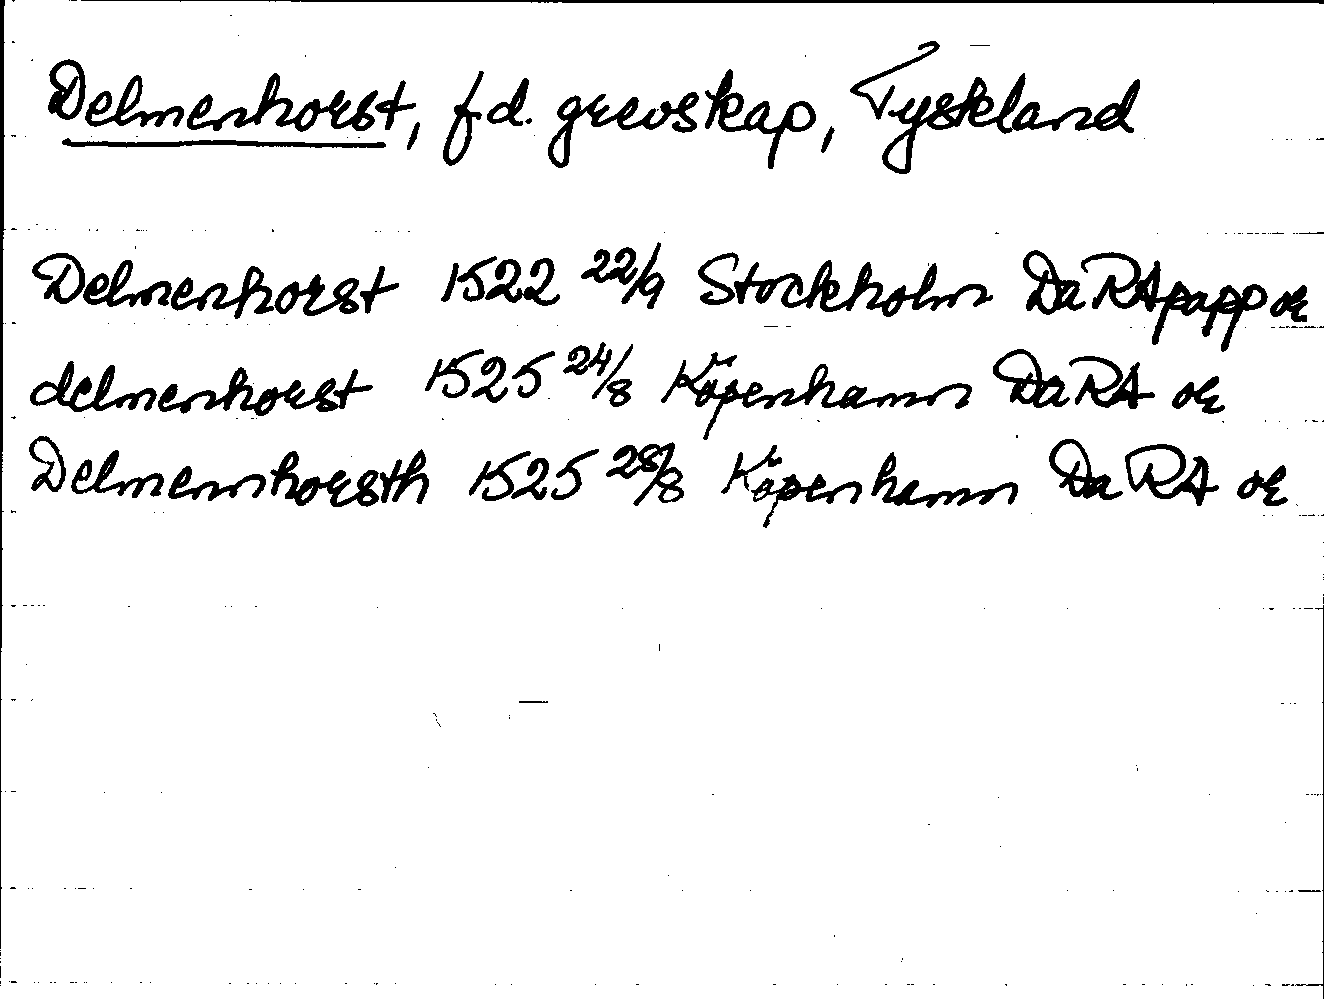 Delmenhorst, f d. grevskap, Tyskland
Delmenhorst 1522 22/9 Stockholm DaRApapp or
delmenhorst 1525 24/8 Köpenhamn DaRA or
Delmennhorsth 1525 28/8 Köpenhamn DaRA or